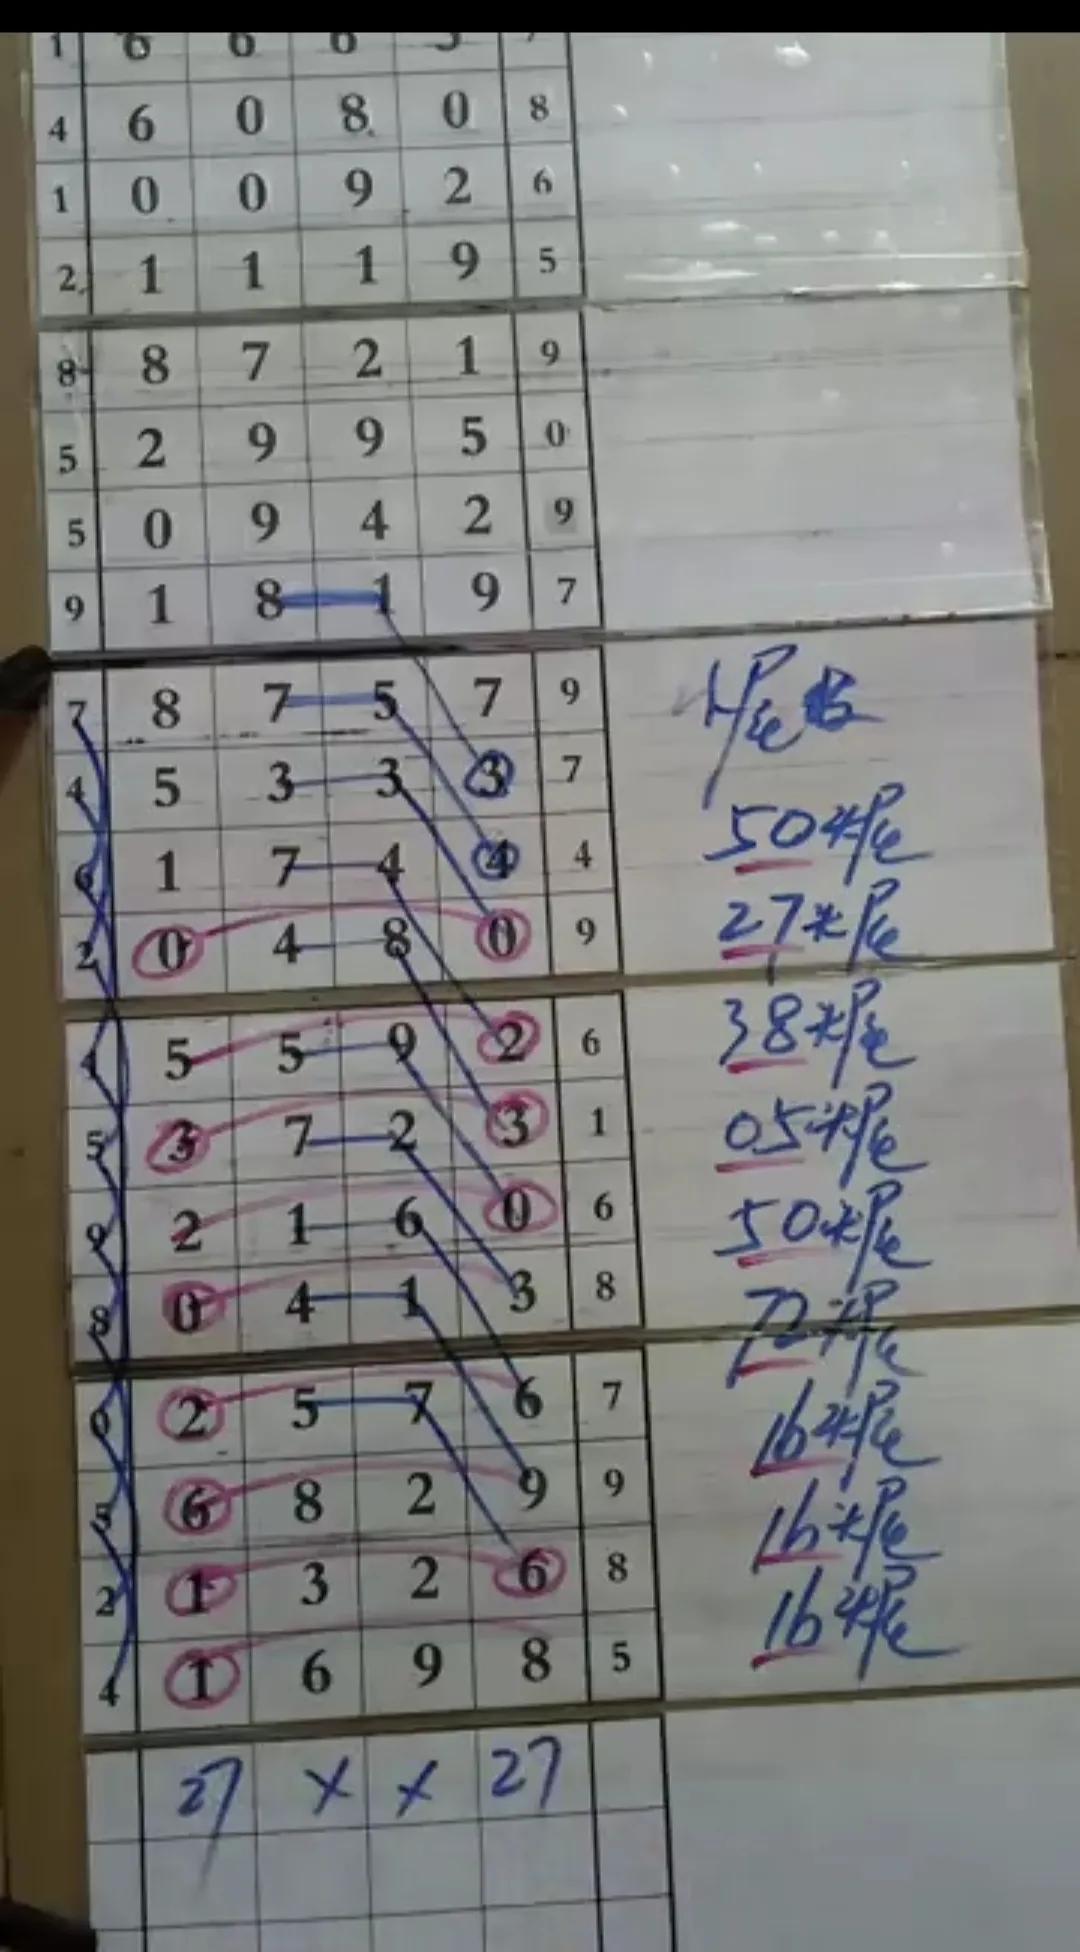 4 6 0 8 0 8
1 0 0 9 2 6
2 1 1 1 9 5
8 8 7 2 1 9
5 2 9 9 5 0
5 0 9 4 2 9
9 1 8 1 9 7
7 8 7 5 7 9
4 5 3 3 3 7
6 1 7 4 4 4 50
2 0 4 8 0 9 27
4 5 5 9 2 6 38
5 3 7 2 3 1 05
9 2 1 6 0 6 50
8 0 4 1 3 8 72
0 2 5 7 6 7 16
5 6 8 2 9 9 16
2 1 3 2 6 8 16
4 1 6 9 8 5
27 × × 27